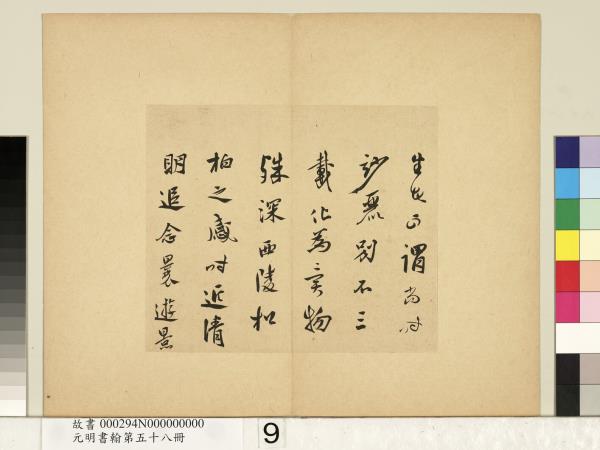 生可謂當時
妙麗別不三
載化為異物
殊深西陵松
柏之感時近清
明追念曩遊景
故書 000294N000000000
元明書翰第五十八冊
9